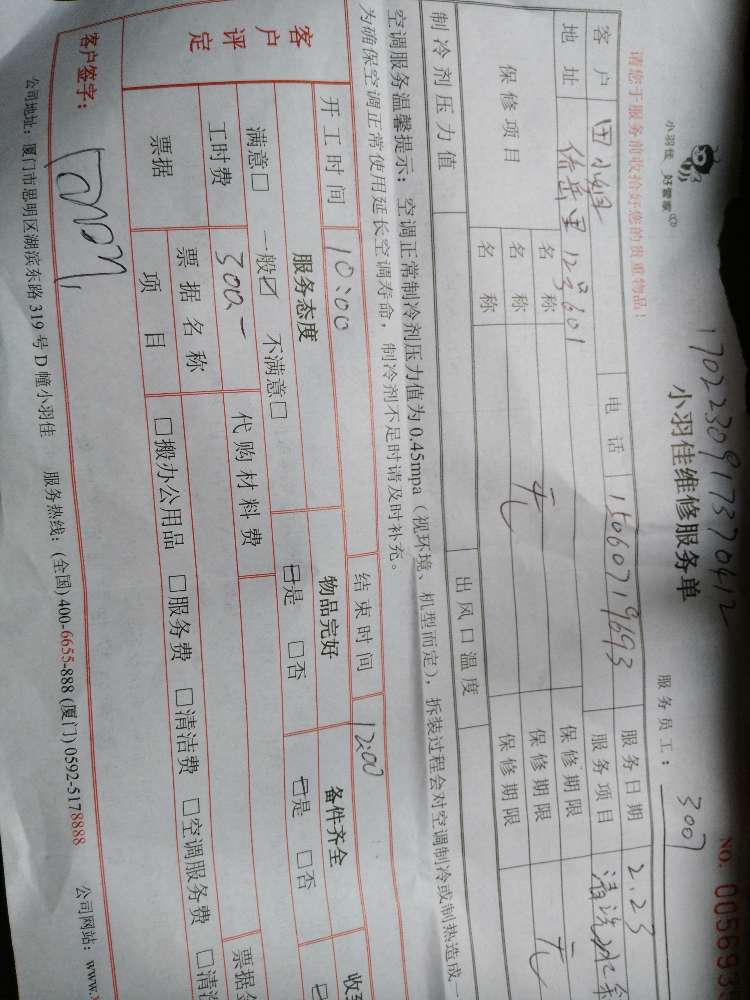 小羽佳 好管家
1702230917370412
小羽佳维修服务单
NO. 005693
请您于服务前收拾好您的贵重物品!
服务员工: 3007
客户 田小姐 电话 15060719693 服务日期 2.23
地址 123#601 服务项目 清洗
保修项目 名称 保修期限
名称 无 保修期限 无
名称 保修期限
制冷剂压力值 出风口温度
空调服务温馨提示: 空调正常制冷剂压力值为0.45mpa (视环境、机型而定), 拆装过程会对空调制冷或制热造成一
为确保空调正常使用延长空调寿命, 制冷剂不足时请及时补充。
开工时间 10:00 结束时间 12:00
客户评定 服务态度 物品完好 备件齐全
满意□ 一般☑ 不满意□ ☑是 □否 ☑是 □否
工时费 300- 代购材料费
票据 票据名称 票据
项目 □搬办公用品 □服务费 □清洁费 □空调服务费 □清洁
客户签字:
公司地址: 厦门市思明区湖滨东路 319 号 D 幢小羽佳 服务热线: (全国) 400-6655-888 (厦门) 0592-5178888 公司网站: www.